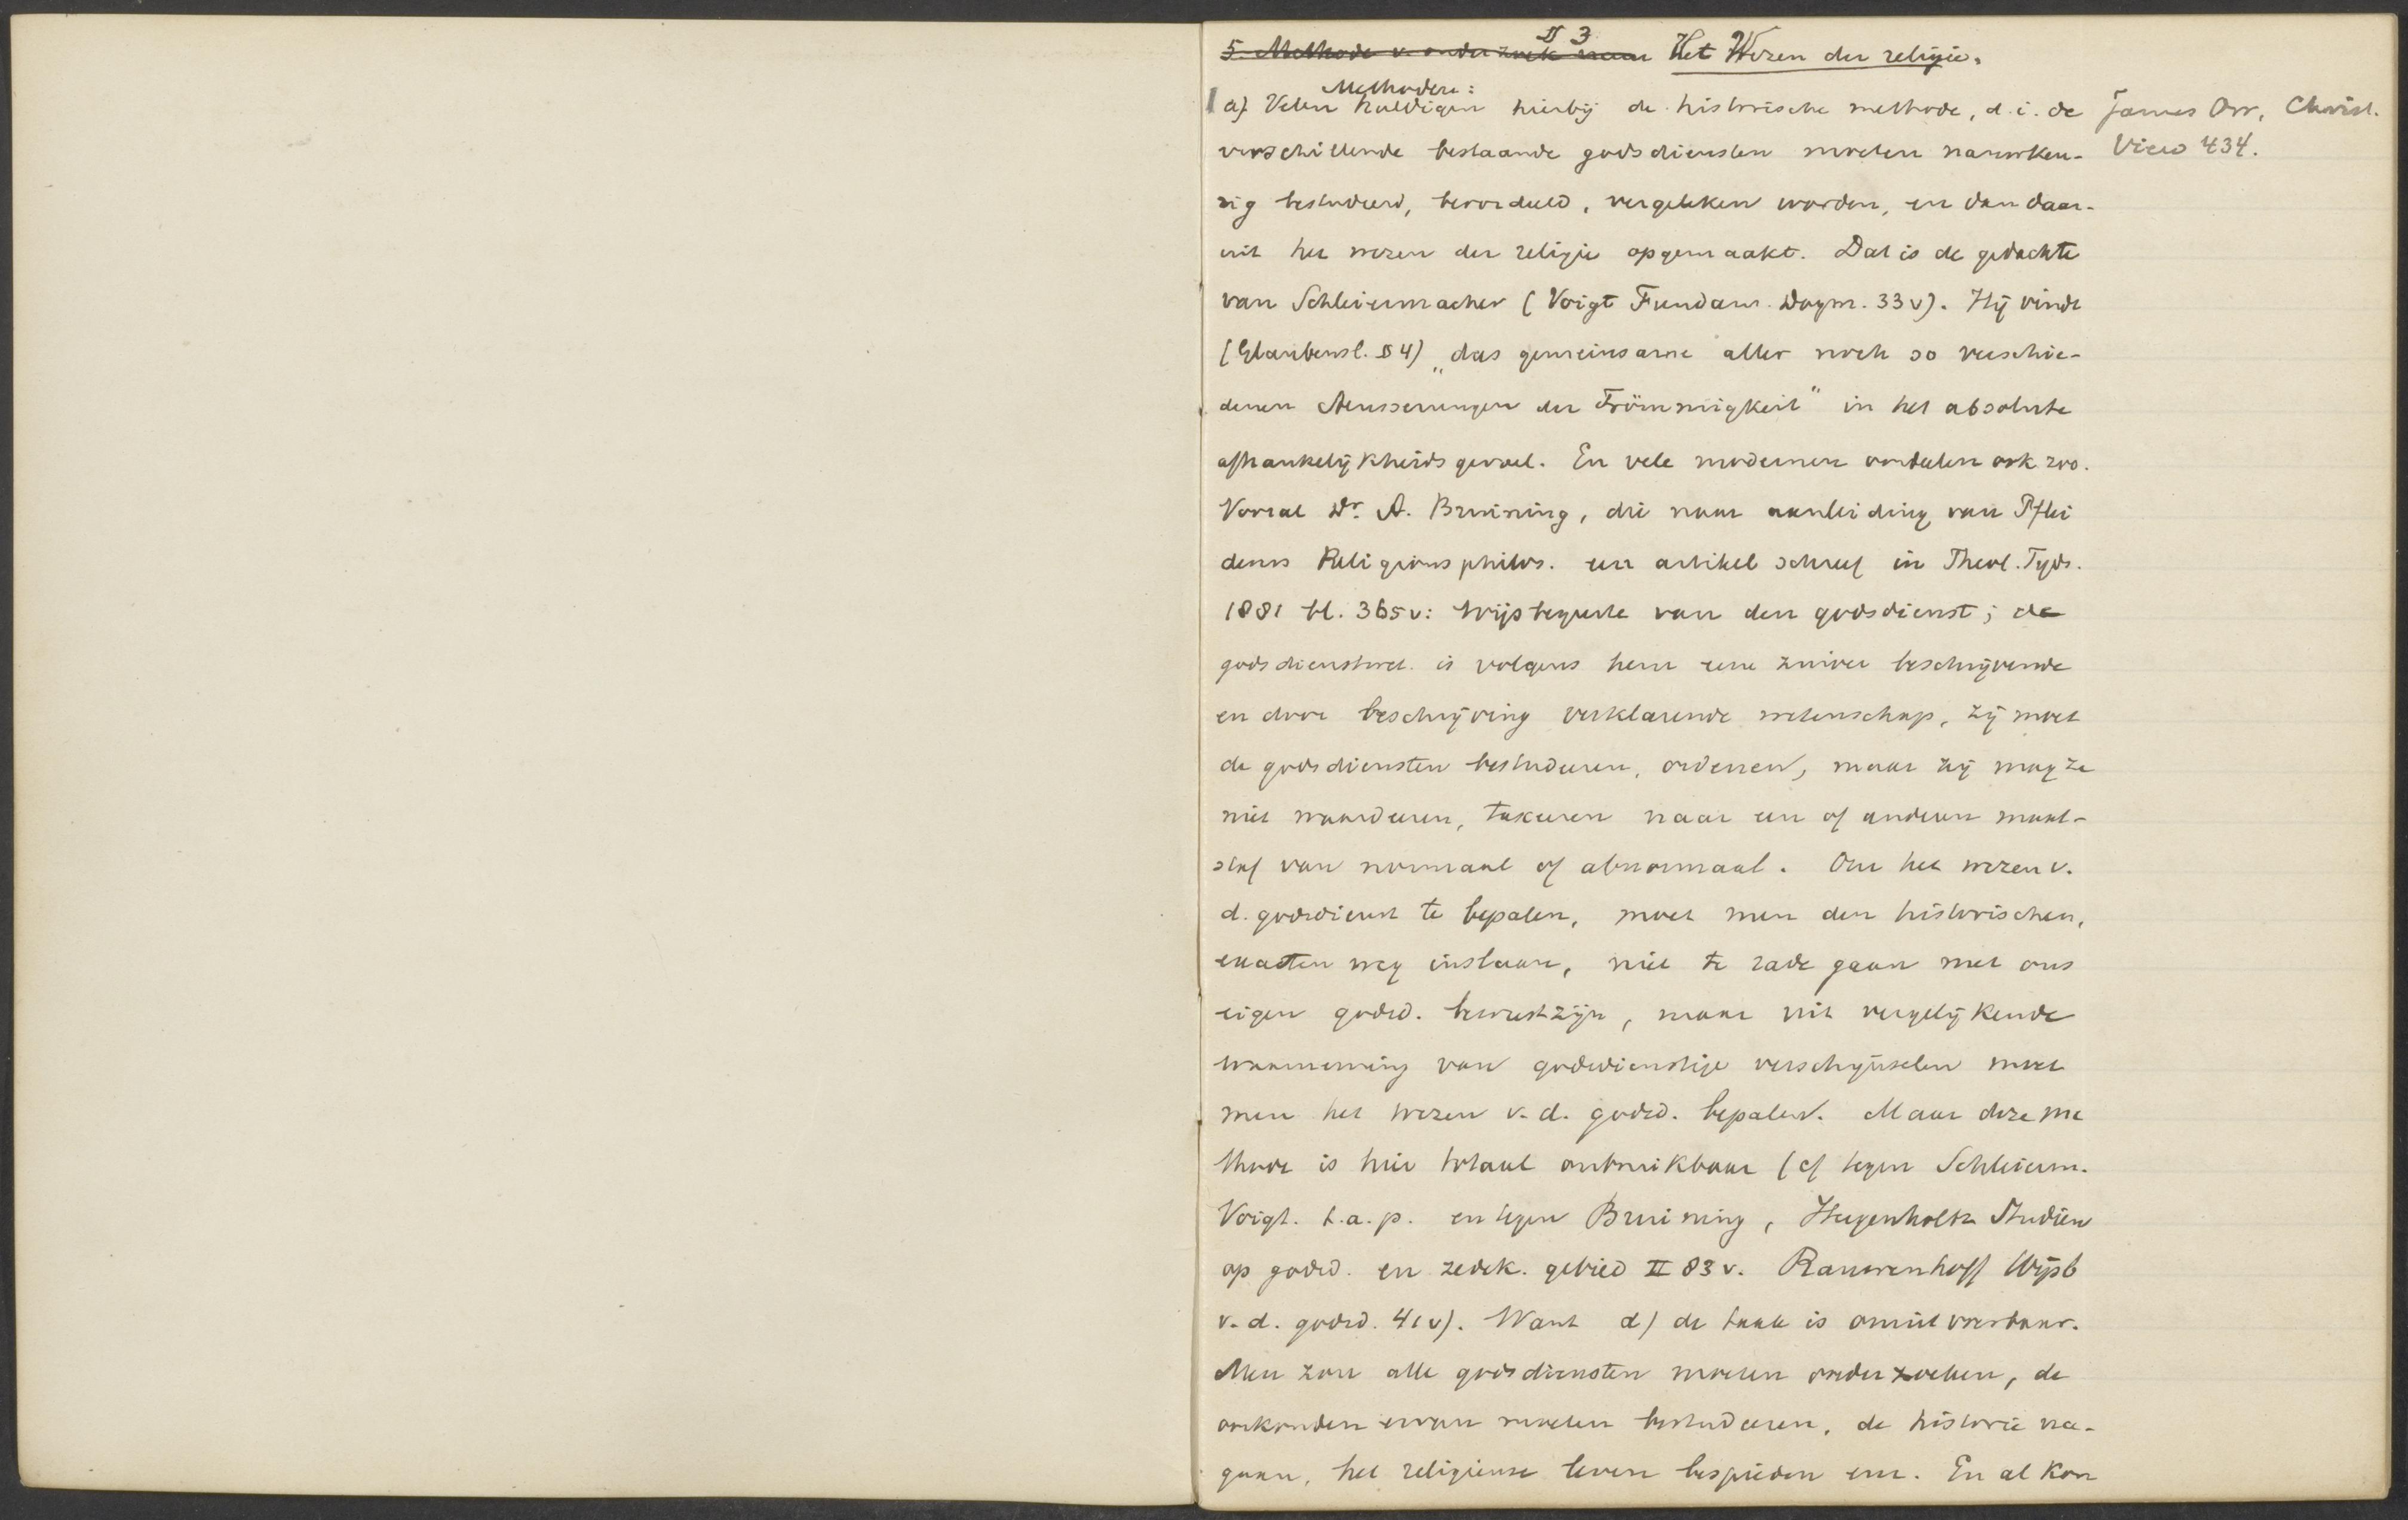 § 3
5. Methode v. onderzoek naar Het Wezen der religie.
Methoden:
a) Velen huldigen hierbij de historische methode, d.i. de
verschillende bestaande godsdiensten moeten nauwkeu-
rig bestudeerd, beoordeeld, vergeleken worden, en dan daar-
uit het wezen der religie opgemaakt. Dat is de gedachte
van Schleiermacher (Voigt Fundam. Dogm. 33 v). Hij vindt
(Glaubensl. § 4) „das gemeinsame aller noch so verschie-
denen Aeusserungen der Frömmigkeit" in het absolute
afhankelijkheidsgevoel. En vele modernen oordeelen ook zoo.
Vooral Dr. A. Bruining, die naar aanleiding van Pflei
derers Religionsphilos. een artikel schreef in Theol. Tijds.
1881 bl. 365 v: Wijsbegeerte van den godsdienst; de
godsdienstwet. is volgens hem eene zuiver beschrijvende
en door beschrijving verklarende wetenschap, zij moet
de godsdiensten bestudeeren, ordenen, maar zij mag ze
niet waardeeren, taxeeren naar een of anderen maat-
staf van normaal of abnormaal. Om het wezen v.
d. godsdienst te bepalen, moet men den historischen,
exacten weg inslaan, niet te rade gaan met ons
eigen godsd. bewustzijn, maar uit vergelijkende
waarneming van godsdienstige verschijnselen moet
men het wezen v. d. godsd. bepalen. Maar deze me
thode is hier totaal onbruikbaar (cf tegen Schleierm.
Voigt. t.a.p. en tegen Bruining, Hugenholtz Studiën
op godsd. en zedek. gebied II 83 v. Rauwenhoff Wijsb
v. d. godsd. 41 v). Want α) de taak is onuitvoerbaar.
Men zou alle godsdiensten moeten onderzoeken, de
oorkonden ervan moeten bestudeeren, de historie na-
gaan, het religieuse leven bespieden enz. En al kon
James Orr, Christ.
View 434.